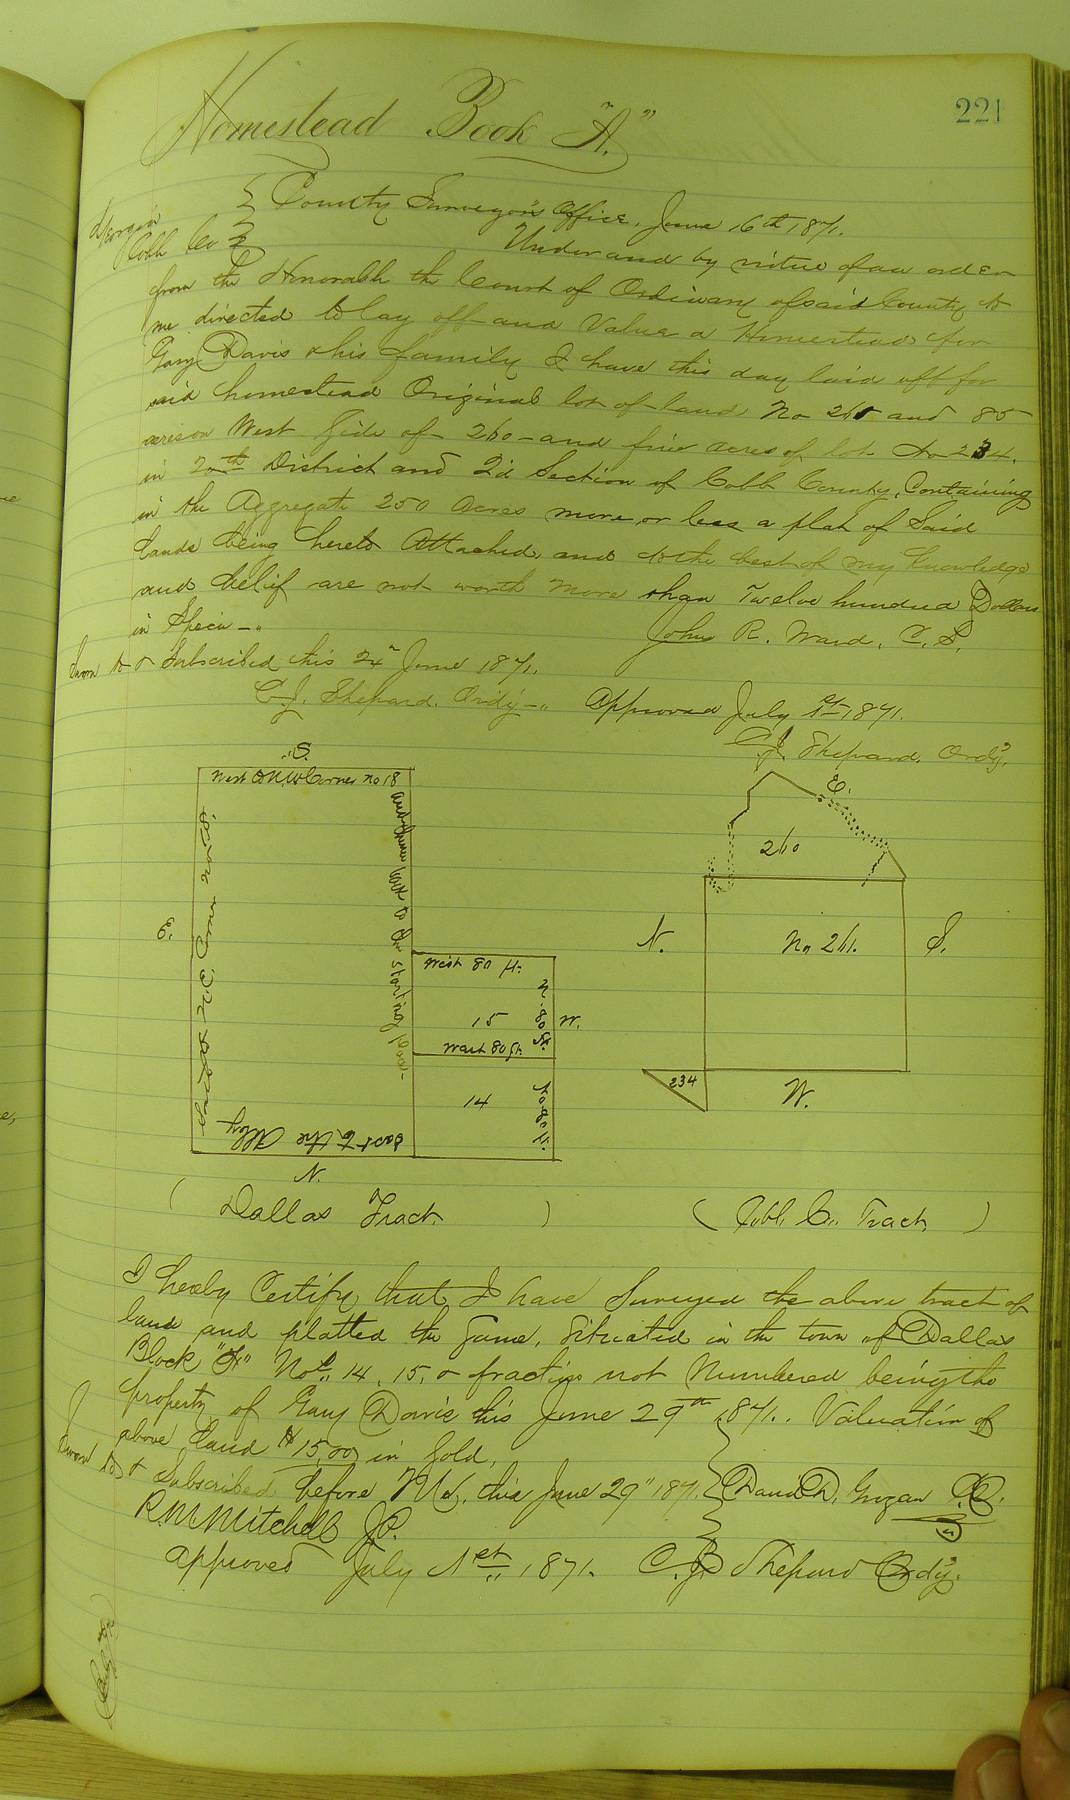 221
Homestead Book "A."
Georgia
Cobb Co
County Surveyor's Office, June 16th 1871.
Under and by virtue of an order
from the Honorabl the Court of Ordinary of said County to
me directed to lay off and Value a Homestead for
Gary Davis & his family I have this day laid off for
said homestead Original lot of land No 261 and 85
acres on West Side of 260 - and five acres of lot No 234.
in 20th District and 2d Section of Cobb County, Containing
in the Aggregate 250 Acres more or less a plat of Said
lands being hereto Attached, and to the best of my Knowledge
and belief are not worth more than Twelve hundred Dollars
in Specie -
John R. Ward, C. S.
Sworn to & Subscribed this 24" June 1871.
C. J. Shepard. Ordy -
Approved July 1st 1871.
C. J. Shepard. Ordy.
S.
West to N.W. Corner No 18
and West to the starting
E.
N.E. Corner No 18.
East to the Alley
West 80 ft.
15
N. 80 ft.
W.
West 80 ft.
14
N. 80 ft.
N.
( Dallas Tract )
E.
260
N.
No 261.
S.
234
W.
( Cobb C. Tract )
I hereby Certify that I have Surveyed the above tract of
land and platted the Same, Situated in the town of Dallas
Block Nos. 14, 15, & fraction not Numbered being the
property of Gary Davis this June 29th 1871. Valuation of
above land $15,00 in Gold,
Sworn to & Subscribed before Me, this June 29" 1871.
David D. Grogan
R. M. Mitchell J.P.
approved July 1st 1871. C. J. Shepard Ordy.